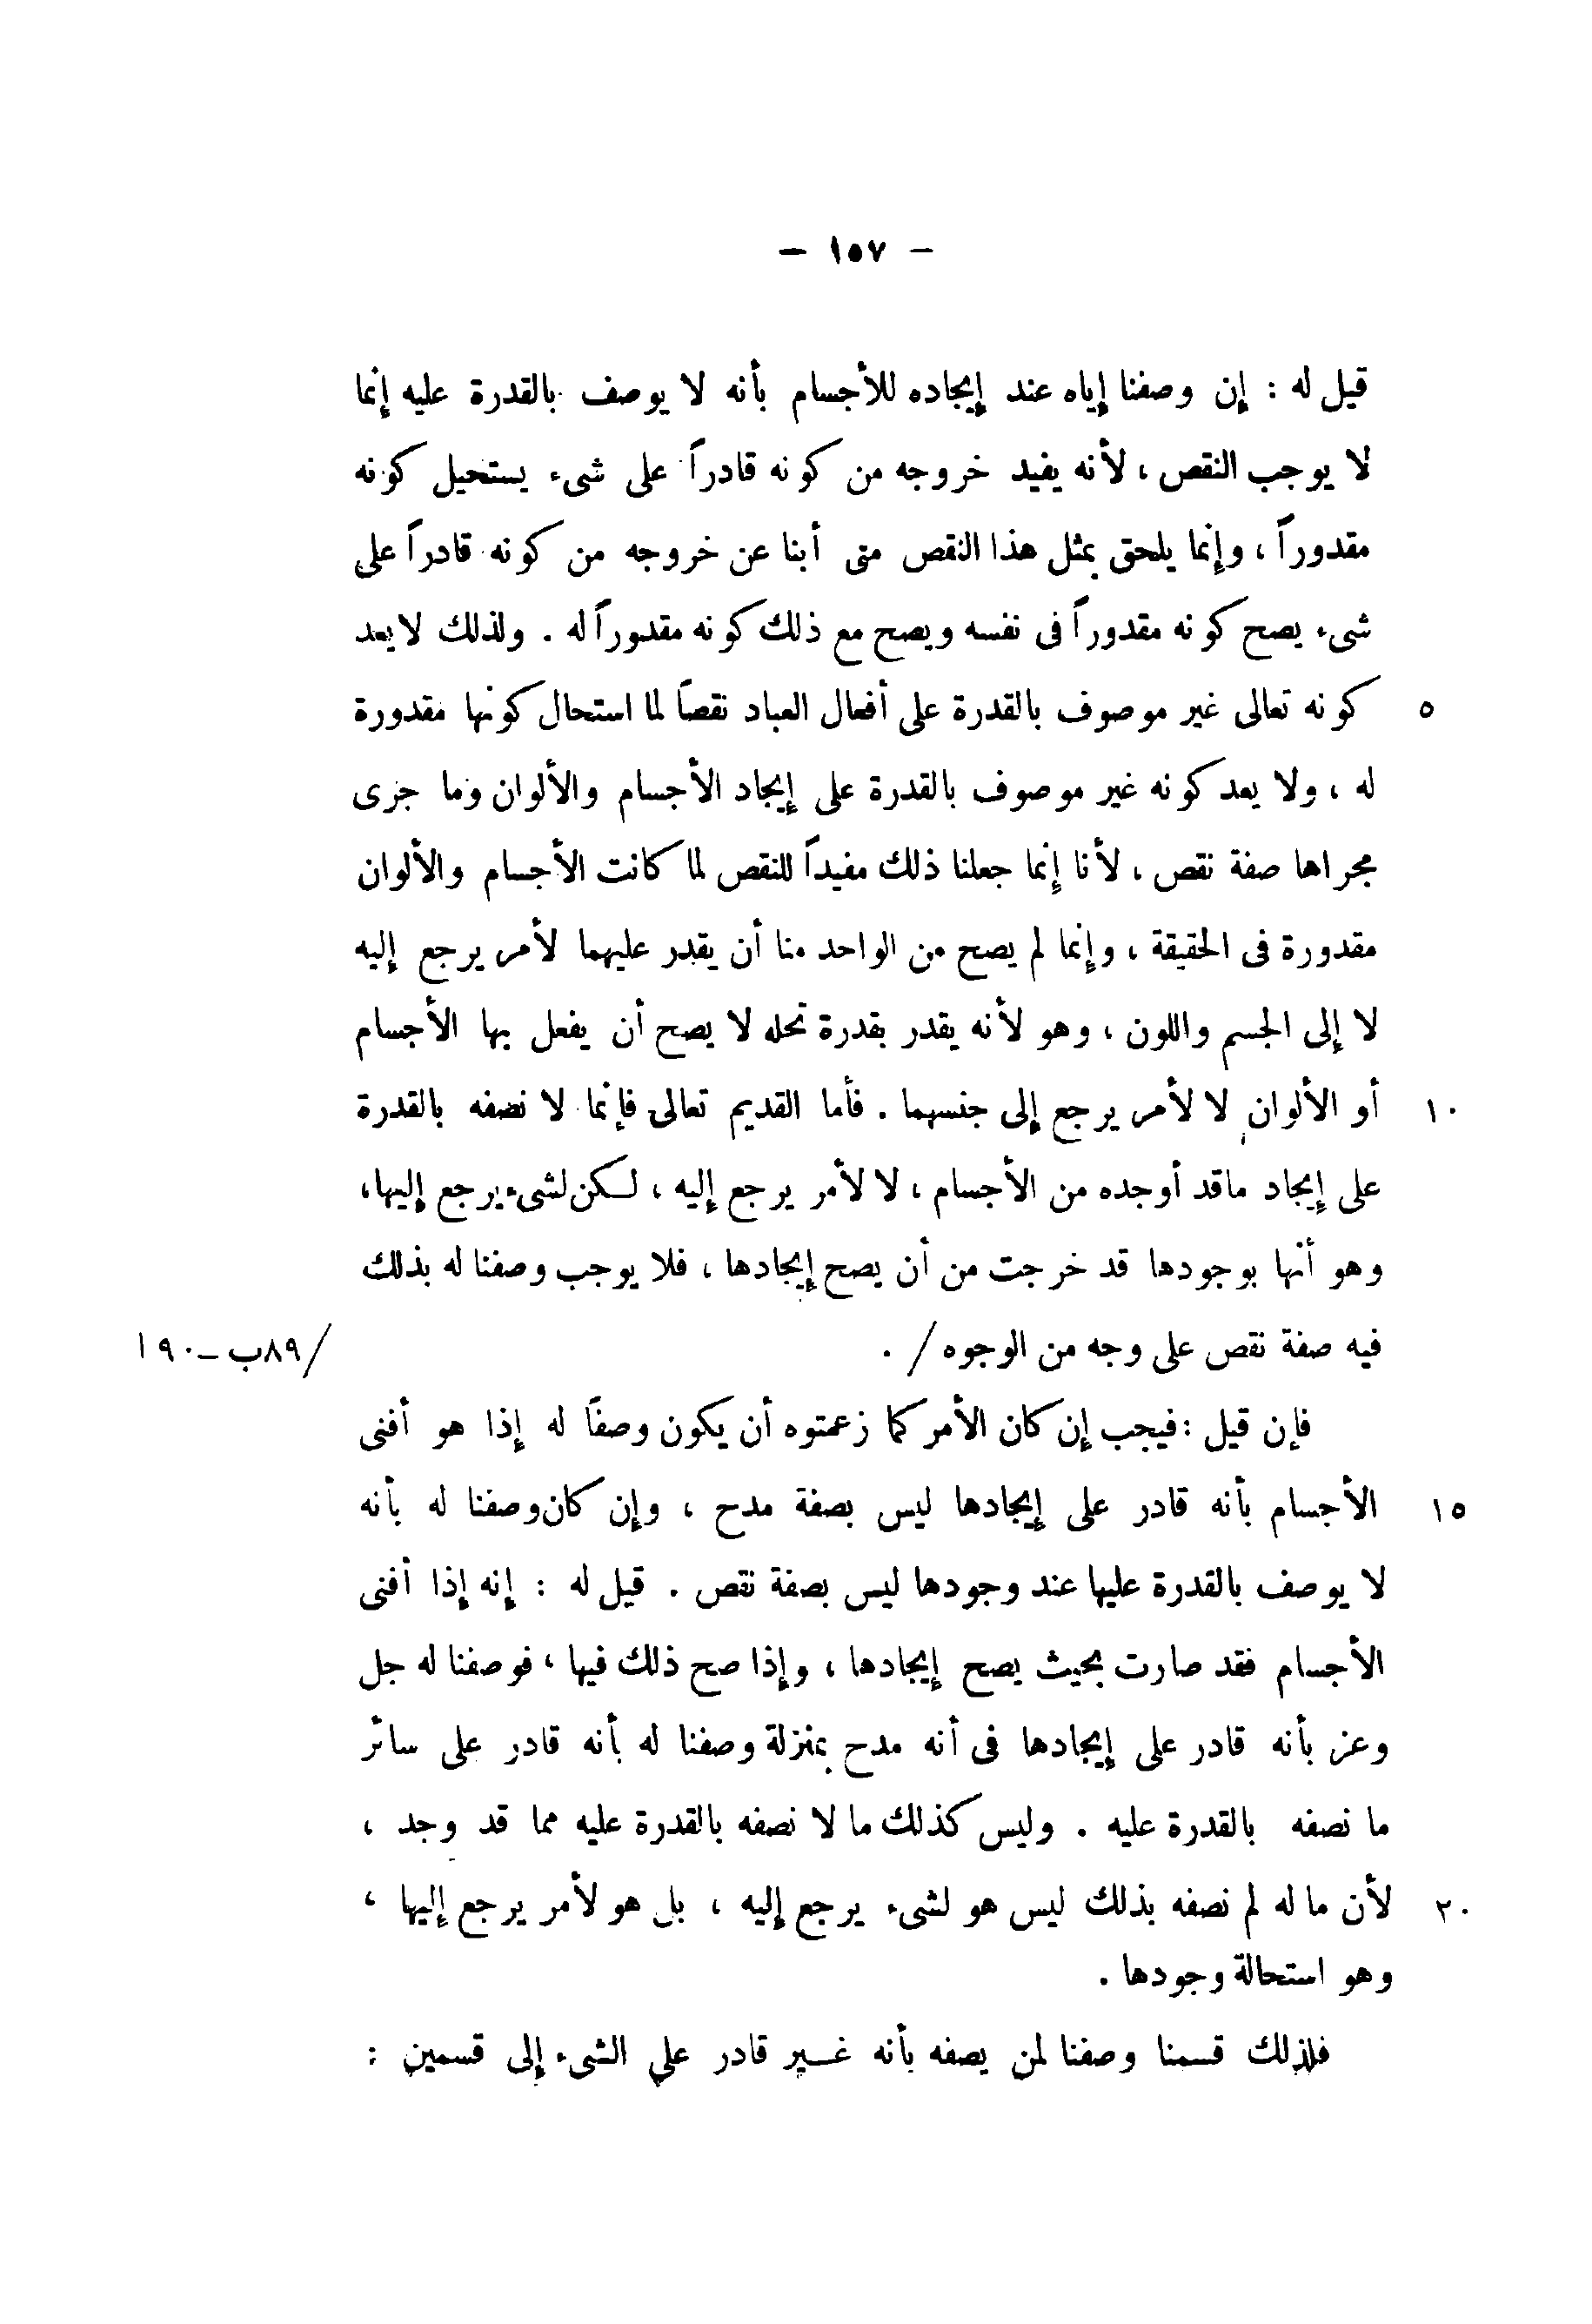 — ١٥٧ —
قيل له : إن وصفنا إياه عند إيجاده للأجسام بأنه لا يوصف بالقدرة عليه إنما
لا يوجب النقص ، لأنه يفيد خروجه من كونه قادراً على شىء يستحيل كونه
مقدوراً ، وإنما يلحق بمثل هذا النقص متى أبنا عن خروجه من كونه قادراً على
شىء يصح كونه مقدوراً فى نفسه ويصح مع ذلك كونه مقدوراً له . ولذلك لا يعد
٥ كونه تعالى غير موصوف بالقدرة على أفعال العباد نقصاً لما استحال كونها مقدورة
له ، ولا يعد كونه غير موصوف بالقدرة على إيجاد الأجسام والألوان وما جرى
مجراها صفة نقص ، لأنا إنما جعلنا ذلك مفيداً للنقص لما كانت الأجسام والألوان
مقدورة فى الحقيقة ، وإنما لم يصح من الواحد منا أن يقدر عليهما لأمر يرجع إليه
لا إلى الجسم واللون ، وهو لأنه يقدر بقدرة تحله لا يصح أن يفعل بها الأجسام
١٠ أو الألوان لا لأمر يرجع إلى جنسهما . فأما القديم تعالى فإنما لا نصفه بالقدرة
على إيجاد ماقد أوجده من الأجسام ، لا لأمر يرجع إليه ، لكن لشىء يرجع إليها،
وهو أنها بوجودها قد خرجت من أن يصح إيجادها ، فلا يوجب وصفنا له بذلك
فيه صفة نقص على وجه من الوجوه / . /٨٩ب – ١٩٠
فإن قيل : فيجب إن كان الأمر كما زعمتوه أن يكون وصفاً له إذا هو أفنى
١٥ الأجسام بأنه قادر على إيجادها ليس بصفة مدح ، وإن كان وصفنا له بأنه
لا يوصف بالقدرة عليها عند وجودها ليس بصفة نقص . قيل له : إنه إذا أفنى
الأجسام فقد صارت بحيث يصح إيجادها ، وإذا صح ذلك فيها ، فوصفنا له جل
وعز بأنه قادر على إيجادها فى أنه مدح بمنزلة وصفنا له بأنه قادر على سائر
ما نصفه بالقدرة عليه . وليس كذلك ما لا نصفه بالقدرة عليه مما قد وجد ،
٢٠ لأن ما له لم نصفه بذلك ليس هو لشىء يرجع إليه ، بل هو لأمر يرجع إليها ،
وهو استحالة وجودها .
فلذلك قسمنا وصفنا لمن يصفه بأنه غير قادر على الشىء إلى قسمين :